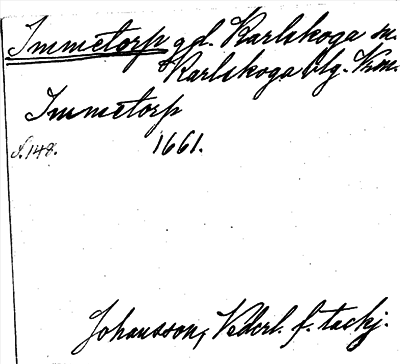 Immetorp gd. Karlskoga sn.
Karlskoga blg. Krm.
Immetorp
s. 148. 1661.
Johansson, Nederl. f. tackj.